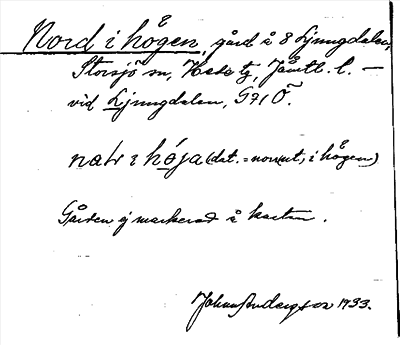 Nord i högen, gård å 8 Ljungdalen,
Storsjö sn, Hede tg, Jämtl. l. —
vid Ljungdalen, G71 Ö.
natr i høja (dat. = nomut; i högen)
Gården ej markerad å kartan.
Johan Anderzson 1933.